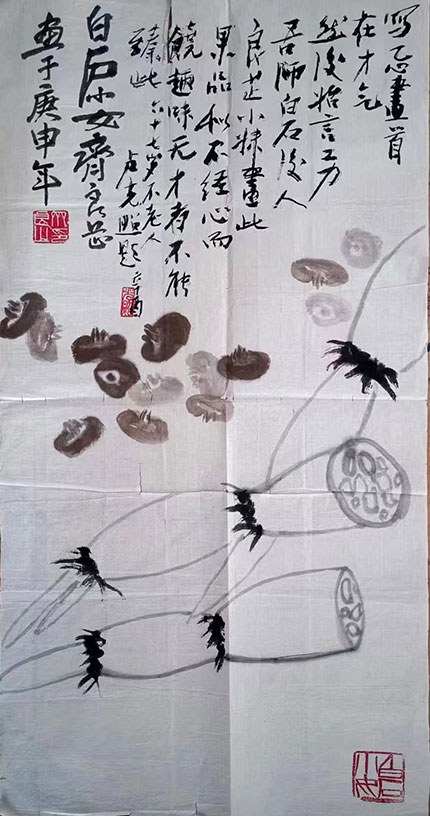 寫意畫首
在才气
然後始言工力
吾師白石後人
良芷小妹畫此
果品似不经心而
饒趣味无才者不能
臻此 六十七岁不老人
卢光照题
白石小女齊良芷
画于庚申年